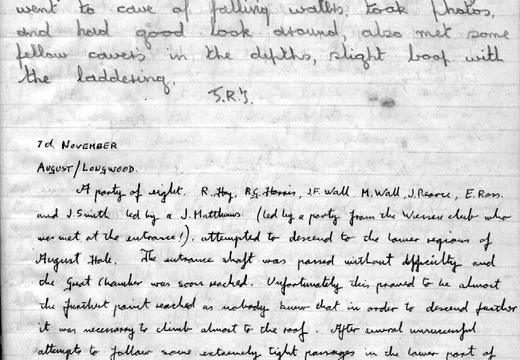 went to cave of falling waters, took photos,
and had good look around, also met some
fellow cavers in the depths, slight boof with
the laddering.
S.R.T.
7d NOVEMBER
AUGUST/LONGWOOD.
A party of eight. R. Hoy, R.G. Harris, J.F. Wall, M. Wall, J. Pearce, E. Ross.
and J. Smith led by a J. Matthews (led by a party from the Wessex club who
was met at the entrance!), attempted to descend to the lower regions of
August Hole. The entrance shaft was passed without difficulty and
the Great Chamber was soon reached. Unfortunately this proved to be almost
the furthest point reached as nobody knew that in order to descend further
it was necessary to climb almost to the roof. After several unsuccessful
attempts to follow some extremely tight passages in the lower part of